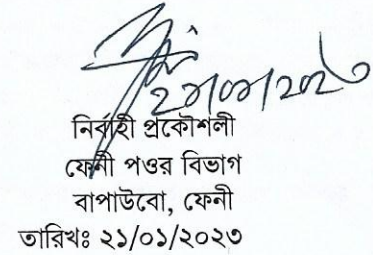 ২১/০১/২০২৩
নির্বাহী প্রকৌশলী
ফেনী পওর বিভাগ
বাপাউবো, ফেনী
তারিখঃ ২১/০১/২০২৩